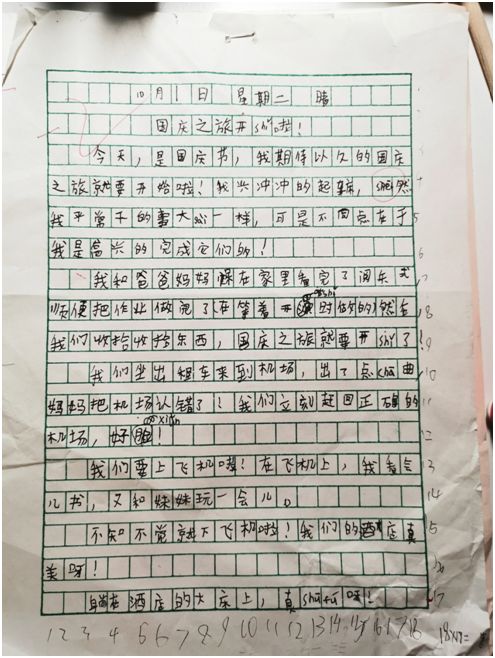 10月1日 星期二 晴
国庆之旅开shǐ啦！
今天，是国庆节，我期待以久的国庆
之旅就要开始啦！我兴冲冲的起床，suī然
我平常干的事大 一样，可是不同点在于
我是高兴的完成它们的！
我和爸爸妈妈 在家里看完了阅兵式
顺便把作业做完了在等着开 时候的然后
我们收拾收拾东西，国庆之旅就要开shǐ了！
我们坐出租车来到机场，出了点chā曲
妈妈把机场认错了！我们立刻赶回正确的
机场，好 xiǎn！
我们要上飞机喽！在飞机上，我看会
儿书，又和妹妹玩一会儿。
不知不觉就下飞机啦！我们的酒店真
美呀！
躺在酒店的大床上，真shūfú呀！
1 2 3 4 5 6 7 8 9 10 11 12 13 14 15 16 17 18 18×17=